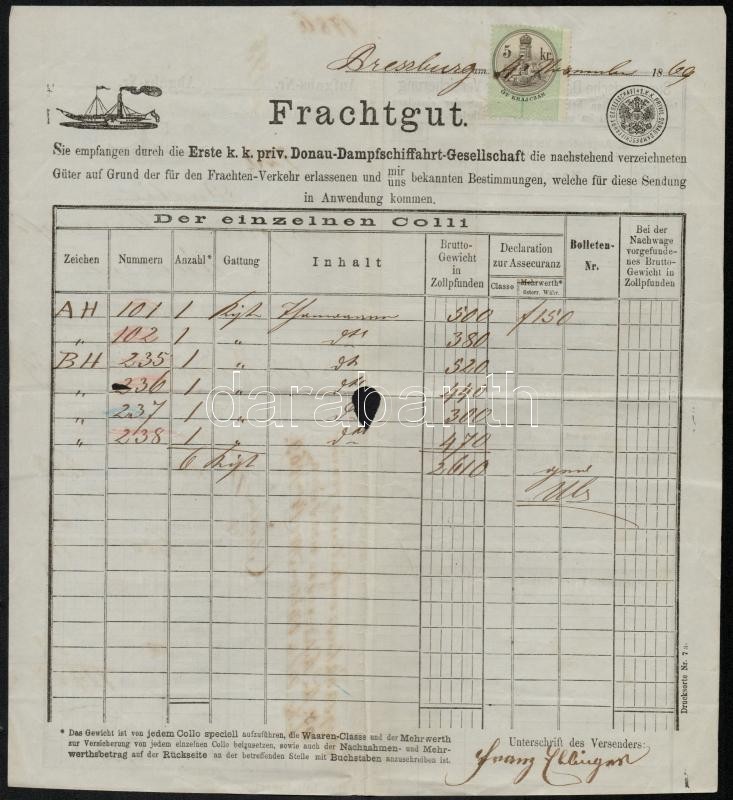 Pressburg am 1869
5 kr.
ÖT KRAJCZÁR
Frachtgut.
Sie empfangen durch die Erste k. k. priv. Donau-Dampfschiffahrt-Gesellschaft die nachstehend verzeichneten
Güter auf Grund der für den Frachten-Verkehr erlassenen und mir/uns bekannten Bestimmungen, welche für diese Sendung
in Anwendung kommen.
Der einzelnen Colli
Zeichen Nummern Anzahl* Gattung Inhalt Brutto-Gewicht in Zollpfunden Declaration zur Assecuranz Classe Mehrwerth* österr. Währ. Bolleten-Nr. Bei der Nachwage vorgefundenes Brutto-Gewicht in Zollpfunden
AH 101 1 Kist 500 f 150
" 102 1 " dto 380
BH 235 1 " dto 520
" 236 1 " dto 440
" 237 1 " dto 300
" 238 1 " dto 470
6 Kist 2610
darabanth
* Das Gewicht ist von jedem Collo speciell aufzuführen, die Waaren-Classe und der Mehrwerth
zur Versicherung von jedem einzelnen Collo beizusetzen, sowie auch der Nachnahmen- und Mehr-
werthsbetrag auf der Rückseite an der betreffenden Stelle mit Buchstaben anzuschreiben ist.
Unterschrift des Versenders:
Franz Edlinger
Drucksorte Nr. 7 a.